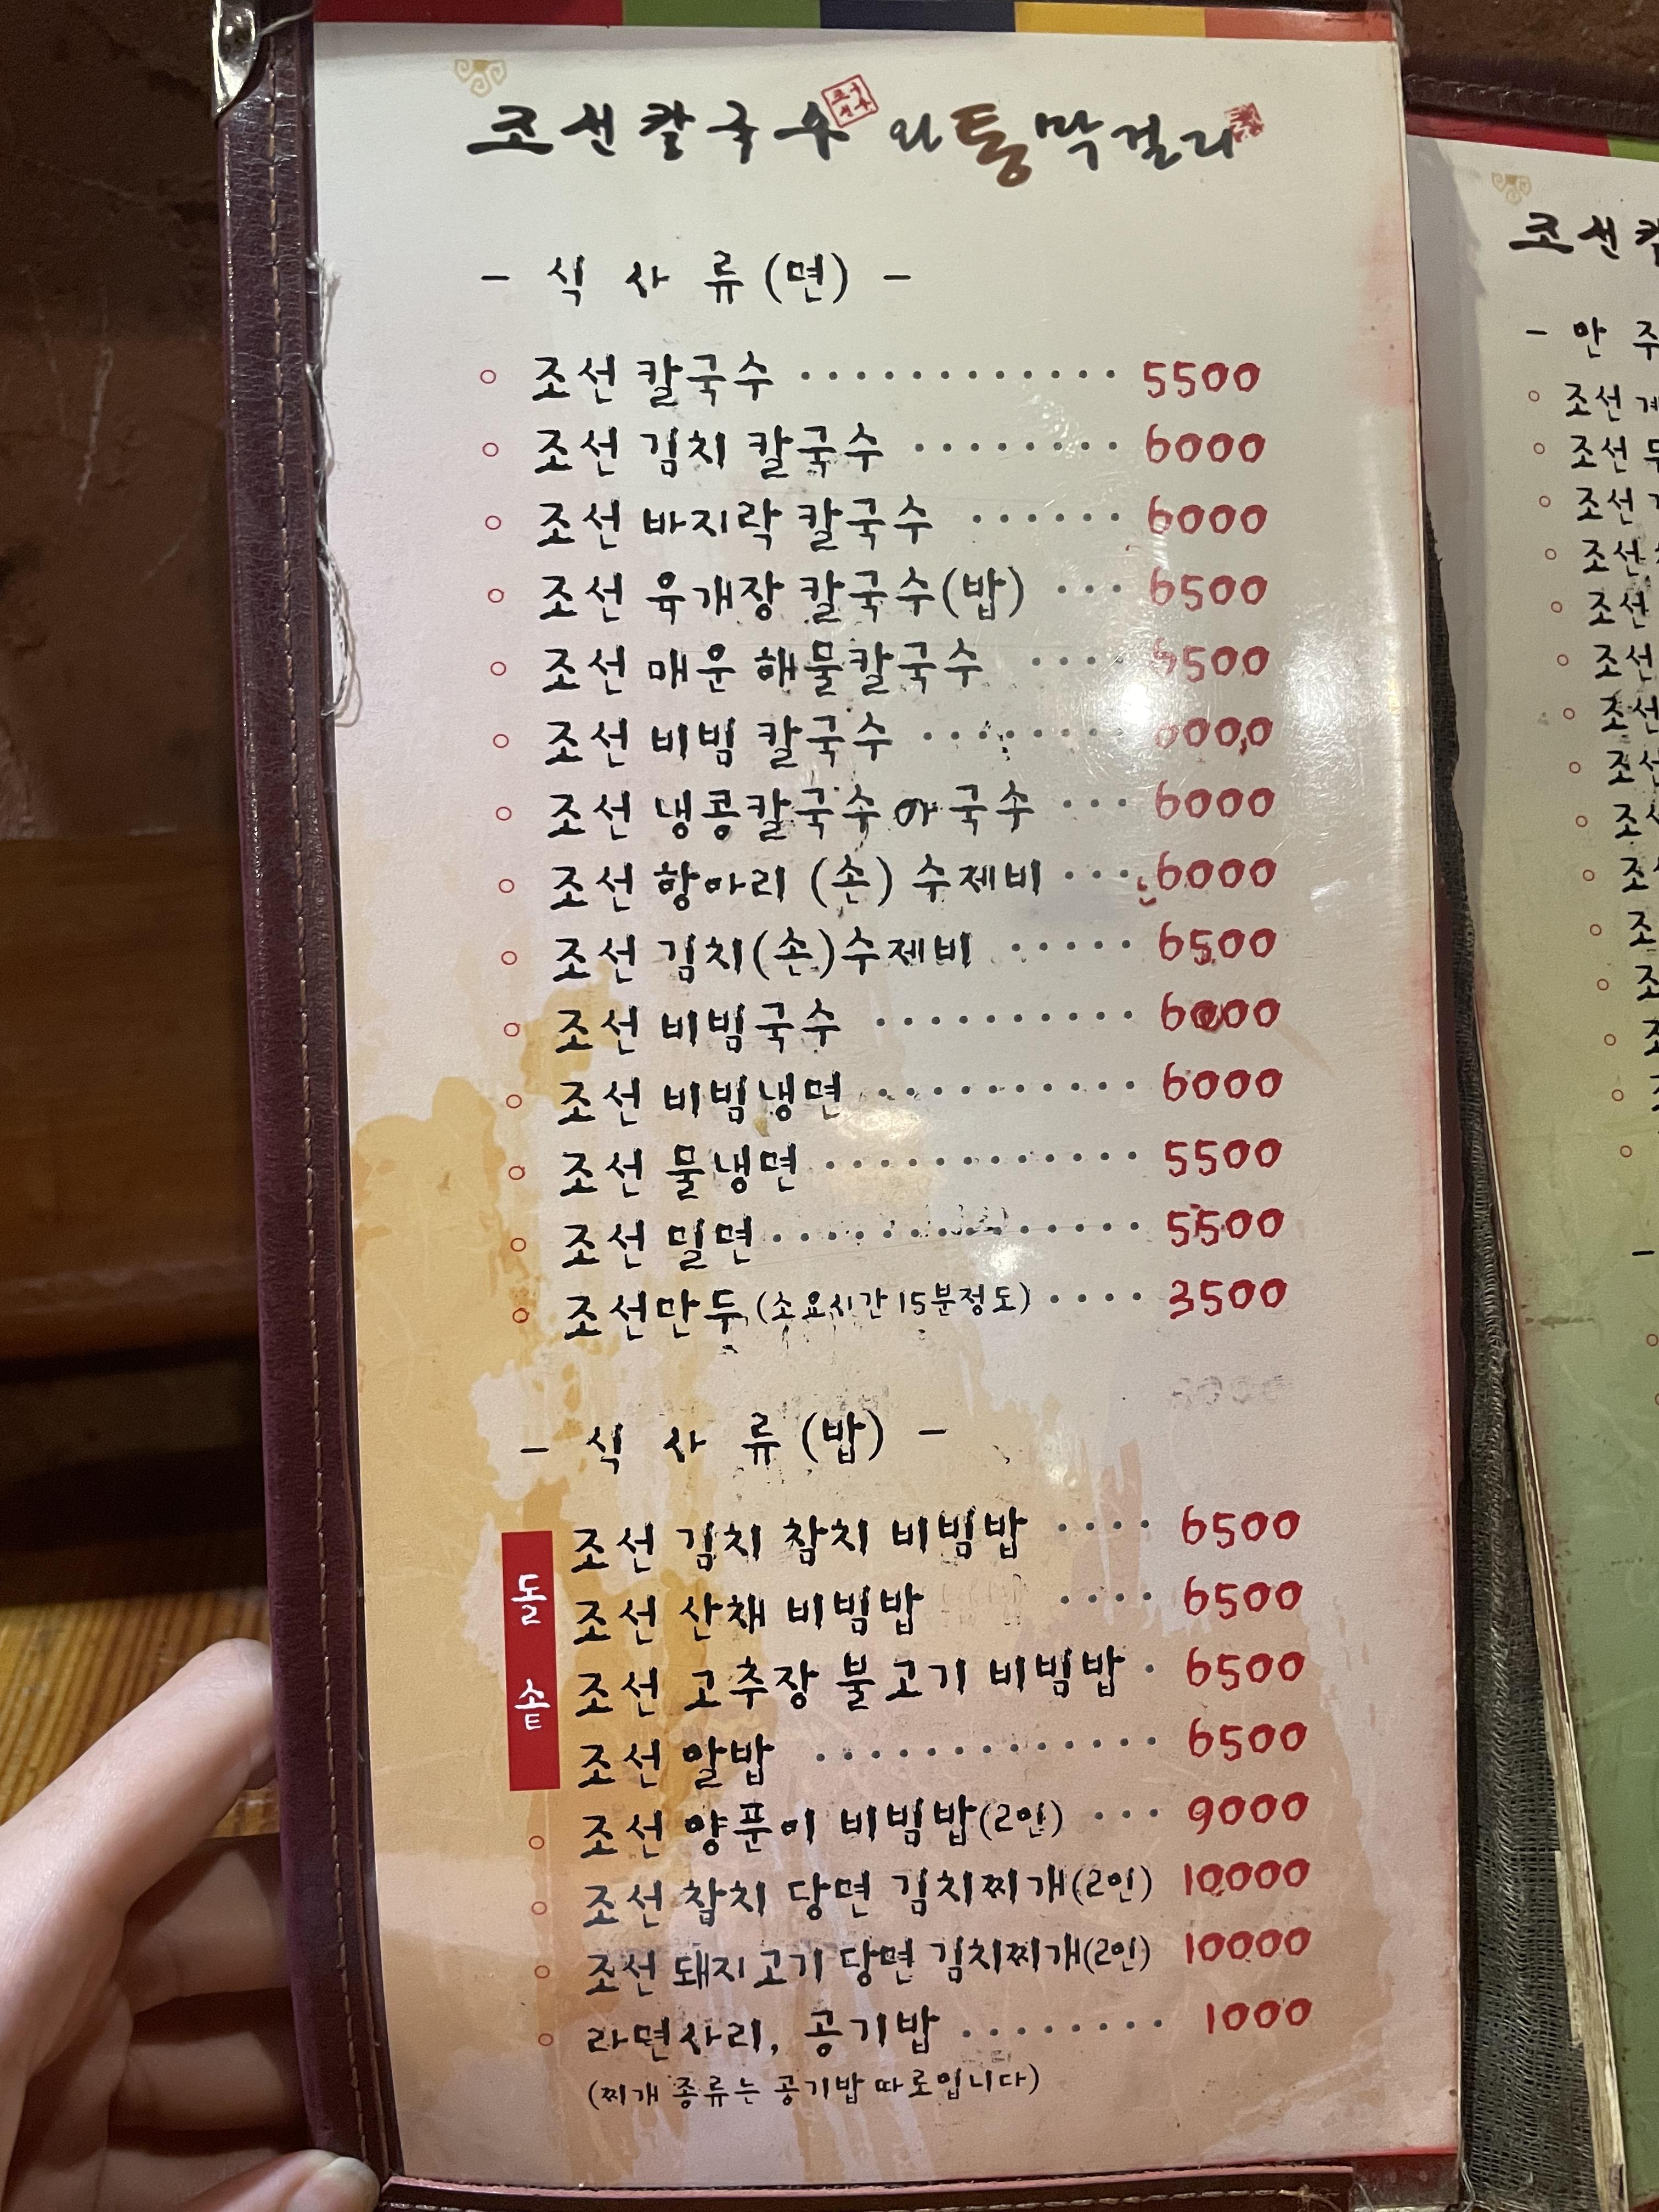 조선칼국수와통막걸리
- 식 사 류 (면) -
조선 칼국수 ············ 5500
조선 김치 칼국수 ········ 6000
조선 바지락 칼국수 ······ 6000
조선 육개장 칼국수(밥) ··· 6500
조선 매운 해물칼국수 ···· 6500
조선 비빔 칼국수 ········
조선 냉콩칼국수 국수 ··· 6000
조선 항아리 (손) 수제비 ··· 6000
조선 김치(손)수제비 ····· 6500
조선 비빔국수 ·········· 6000
조선 비빔냉면 ·········· 6000
조선 물냉면 ············ 5500
조선 밀면 ·············· 5500
조선만두 (소요시간 15분정도) ···· 3500
- 식 사 류 (밥) -
돌 솥
조선 김치 참치 비빔밥 ···· 6500
조선 산채 비빔밥 ···· 6500
조선 고추장 불고기 비빔밥 · 6500
조선 알밥 ············· 6500
조선 양푼이 비빔밥(2인) ··· 9000
조선 참치 당면 김치찌개(2인) 10000
조선 돼지고기 당면 김치찌개(2인) 10000
라면사리, 공기밥 ········ 1000
(찌개 종류는 공기밥 따로입니다)
조선칼
- 안 주
조선
조선
조선
조선
조선
조선
조선